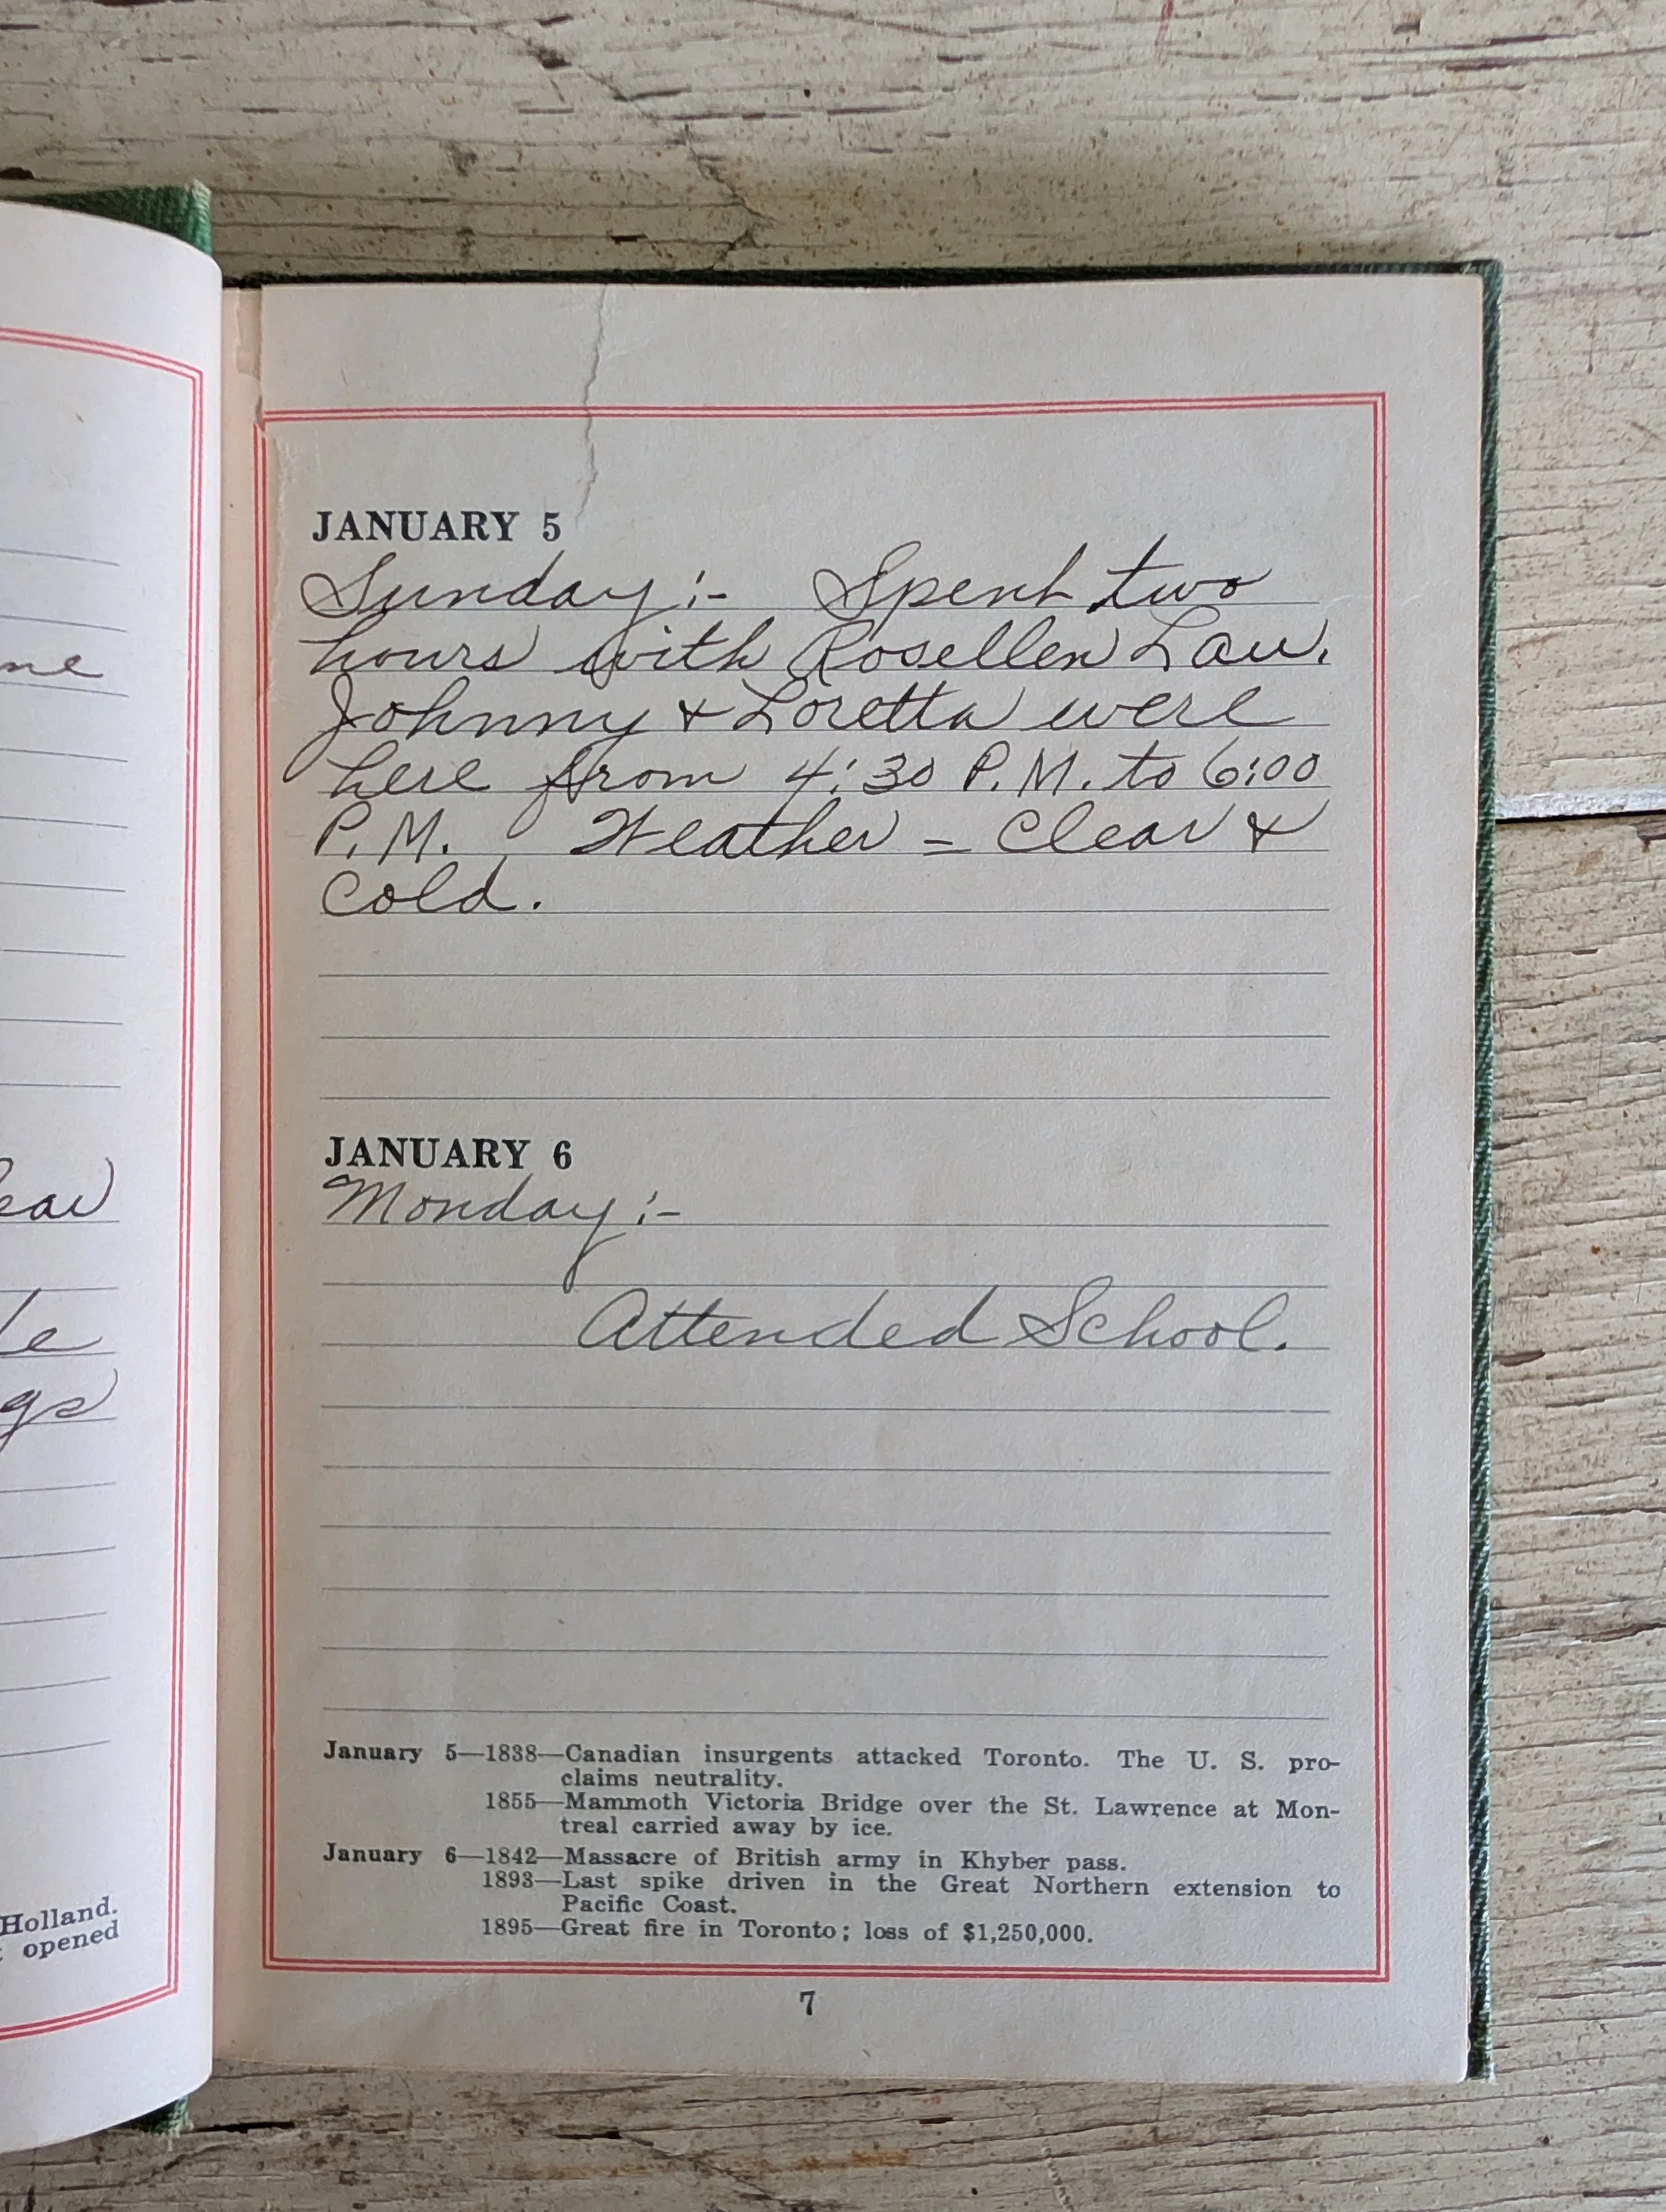 me
ear
le
gs
Holland.
opened
JANUARY 5
Sunday:- Spent two
hours with Rosellen Lau.
Johnny & Loretta were
here from 4:30 P.M. to 6:00
P.M. Weather = Clear &
Cold.
JANUARY 6
Monday:-
Attended School.
January 5—1838—Canadian insurgents attacked Toronto. The U. S. pro-
claims neutrality.
1855—Mammoth Victoria Bridge over the St. Lawrence at Mon-
treal carried away by ice.
January 6—1842—Massacre of British army in Khyber pass.
1893—Last spike driven in the Great Northern extension to
Pacific Coast.
1895—Great fire in Toronto; loss of $1,250,000.
7